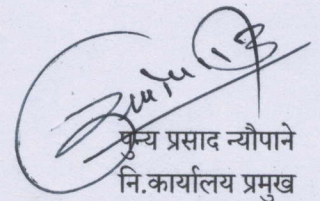 पुन्य प्रसाद न्यौपाने
नि.कार्यालय प्रमुख